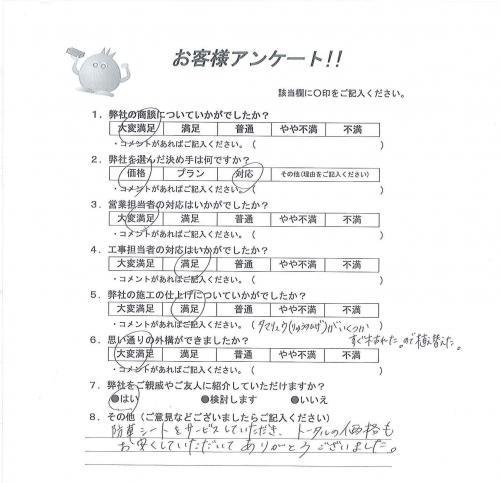 お客様アンケート!!
該当欄に〇印をご記入ください。
1. 弊社の商談についていかがでしたか?
大変満足 満足 普通 やや不満 不満
・コメントがあればご記入ください。(
2. 弊社を選んだ決め手は何ですか?
価格 プラン 対応 その他(理由をご記入ください)
・コメントがあればご記入ください。( )
3. 営業担当者の対応はいかがでしたか?
大変満足 満足 普通 やや不満 不満
・コメントがあればご記入ください。( )
4. 工事担当者の対応はいかがでしたか?
大変満足 満足 普通 やや不満 不満
・コメントがあればご記入ください。( )
5. 弊社の施工の仕上げについていかがでしたか?
大変満足 満足 普通 やや不満 不満
・コメントがあればご記入ください。(タマリュウ(りゅうのひげ)がいくつか
すぐ枯れた。ので植え替えた。
6. 思い通りの外構ができましたか?
大変満足 満足 普通 やや不満 不満
・コメントがあればご記入ください。( )
7. 弊社をご親戚やご友人に紹介していただけますか?
●はい ●検討します ●いいえ
8. その他(ご意見などございましたらご記入ください)
防草シートをサービスしていただき、トータルの価格も
お安くしていただいてありがとうございました。